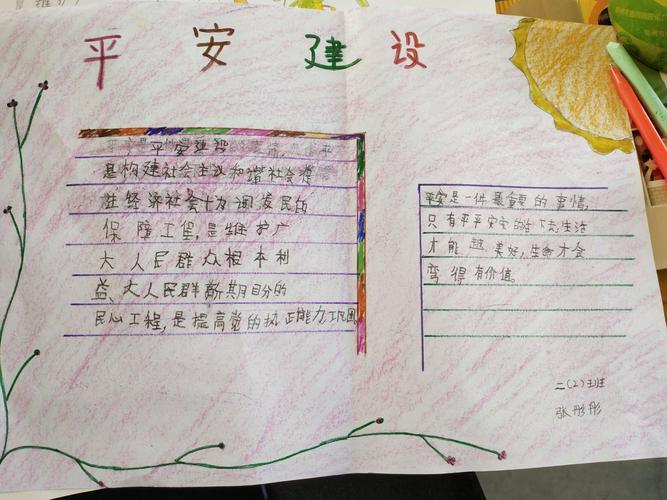 平安建设
平安建设
是构建社会主义和谐社会
经济社会十为阔发民的
保障工程,是维护广
大人民群众根本利
益、大人民群众新其月自分的
民心工程,是提高党的执正能力工巩固
平安是一件最重要的事情,
只有平平安安的活下去,生活
才能越美好,生命才会
变得有价值。
二(2)班
张彤彤